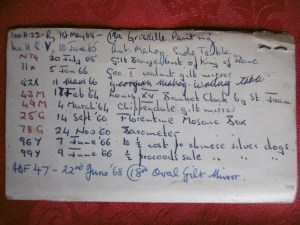 100.H.22-R, 1st May '64 - 18c Grisaille Painting
No. H & V, 10 June '60 Ant. Mahog. Side Table.
N74 20 July '65 Gilt Barquet of King of Rome
11x 5 Jan '66 Geo. I walnut gilt mirror
42R 11 March '66 Writing table
43M 17 Feb '64 Louis XV Bracket Clock by St. Jean
49M 4 March '64 Chippendale gilt mirror
25G 14 Sept '60 Florentine Mosaic Box
78G 24 Nov '60 Barometer
96Y 7 June '66 to ½ cost for chinese silver dogs.
99Y 9 June '66 ½ proceeds sale " "
ABF 47 - 22nd June '68 (18th Oval Gilt Mirror.